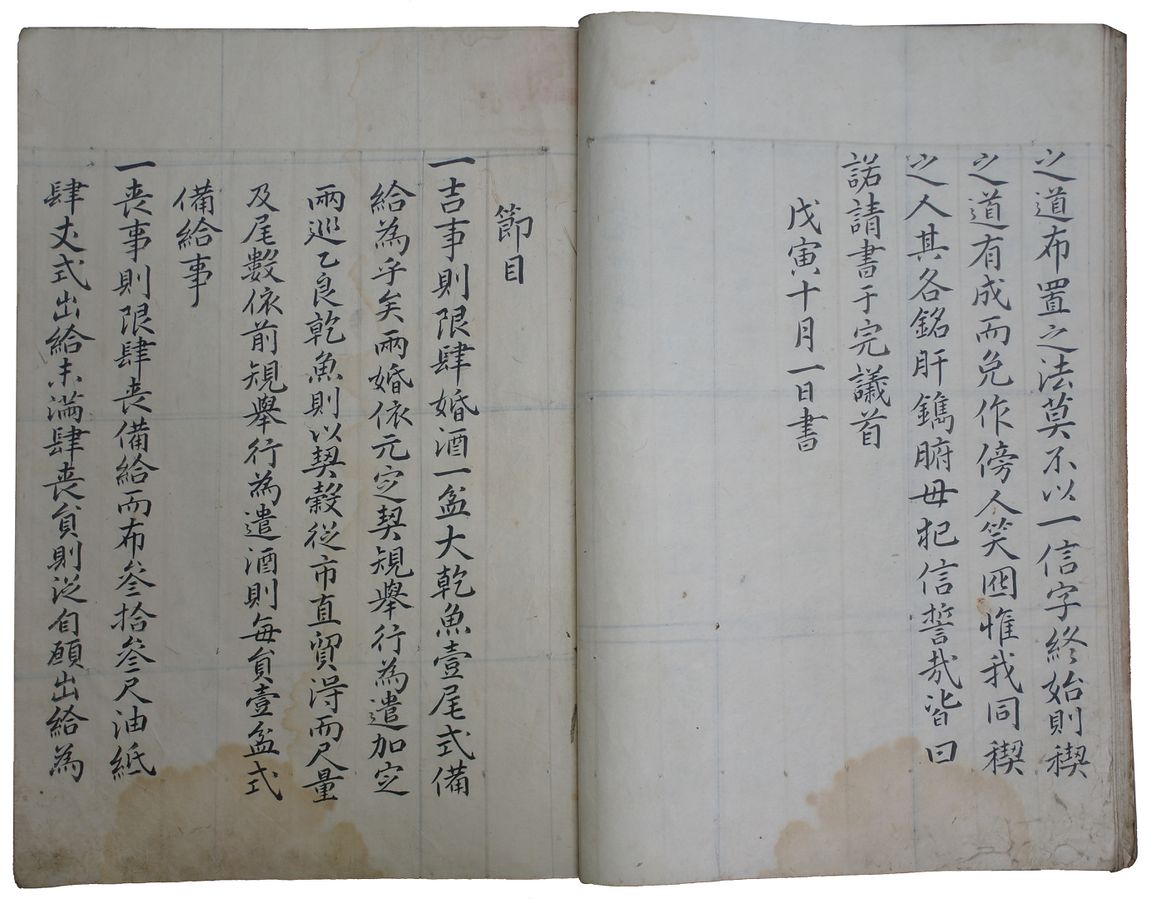 之道布置之法莫不以一信字終始則稧
之道有成而免作傍人笑囮惟我同稧
之人其各銘肝鐫腑毋犯信誓哉皆曰
諾請書于完議首
戊寅十月一日書
節目
一吉事則限肆婚酒一盆大乾魚壹尾式備
給為乎矣兩婚依元定契規舉行為遣加定
兩巡乙良乾魚則以契穀從市直貿得而尺量
及尾數依前規舉行為遣酒則每負壹盆式
備給事
一丧事則限肆丧備給而布叄拾叄尺油紙
肆丈式出給未滿肆丧負則從自願出給為